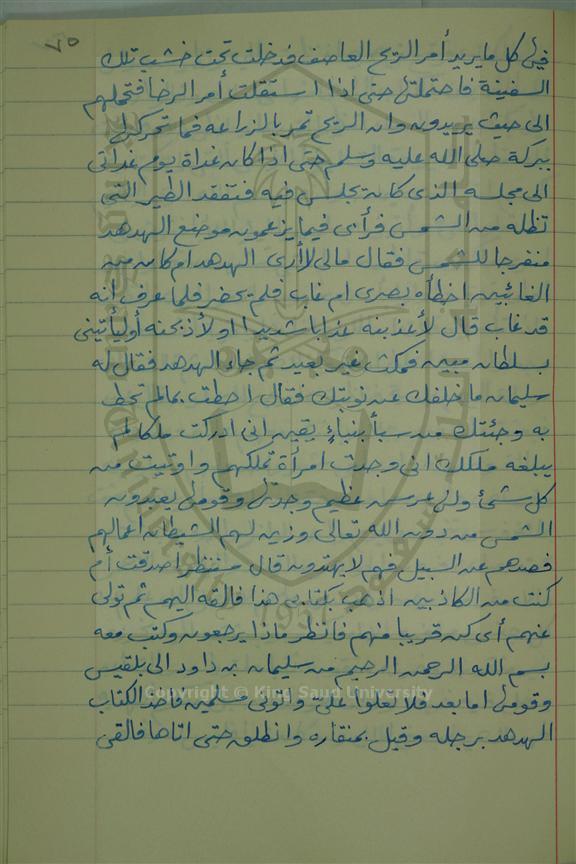 ٧٥
فيها كل ما يريد أمر الريح العاصف فدخلت تحت خشب تلك
السفينة فاحتملتها حتى اذا استقلت أمر الرخا فتحملهم
الى حيث يريدون وان الريح تمر بالزراعه فما تحركها
ببركة صلى الله عليه وسلم حتى اذا كان غداة يوم غداتى
الى مجلسه الذى كان يجلس فيه فتفقد الطير التى
تظله من الشمس فرأى فيما يزعمون موضع الهدهد
منفرجا للشمس فقال مالى لا أرى الهدهد ام كان من
الغائبين اخطأه بصرى ام غاب فلم يحضر فلما عرف انه
قد غاب قال لأعذبنه عذابا شديدا او لأذبحنه أو ليأتينى
بسلطان مبين فمكث غير بعيد ثم جاء الهدهد فقال له
سليمان ما خلفك عن نوبتك فقال احطت بمالم تحط
به وجئتك من سبأ بنباءٍ يقين انى ادركت ملكا لم
يبلغه ملكك انى وجدت امرأة تملكهم واوتيت من
كل شئ ولها عرس عظيم وجدتها وقومها يعبدون
الشمس من دون الله تعالى وزين لهم الشيطان اعمالهم
فصدهم عن السبيل فهم لا يهتدون قال سننظر اصدقت أم
كنت من الكاذبين اذهب بكتابى هذا فالقه اليهم ثم تولى
عنهم أى كن قريبا منهم فانظر ماذا يرجعون وكتب معه
بسم الله الرحمن الرحيم من سليمان بن داود الى بلقيس
وقومها اما بعد فلا تعلوا علىّ واتونى مسلمين فاخذ الكتاب
الهدهد برجله وقيل بمنقاره وانطلق حتى اتاها فالقى
Copyright © King Saud University